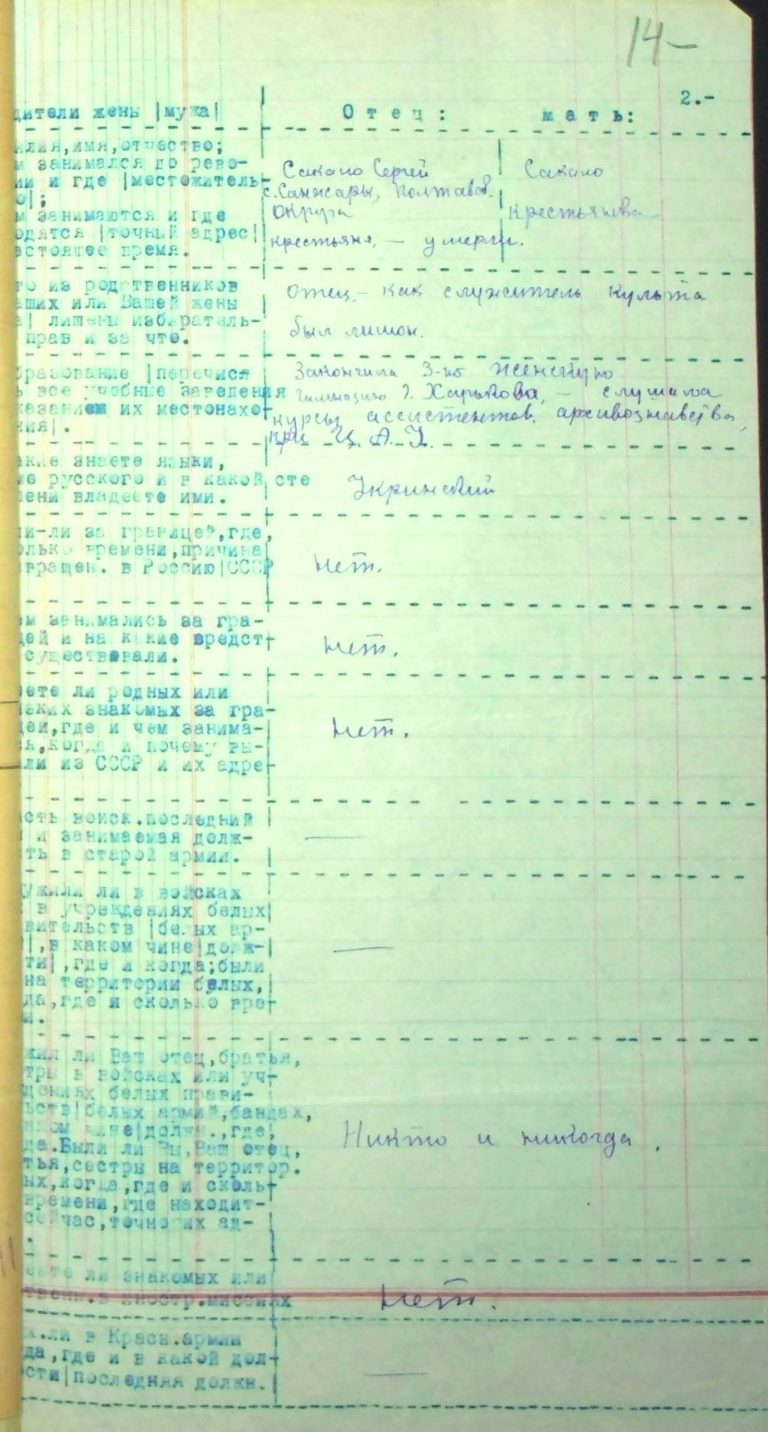 14-
2.-
дители жены |мужа|
Отец: мать:
илия,имя,отчество;
м занимался до рево-
ии и где |местожитель-
о|;
м занимаются и где
одятся |точный адрес|
астоящее время.
Сакало Сергей Сакало
с. Санжары, Полтавск.
Округа Крестьянка
крестьяне, - умерли.
го из родственников
аших или Вашей жены
а| лишены избиратель-
прав и за что.
Отец - как служитель культа
был лишон.
бразование |перечися
ь все учебные заведения
казанием их местонахо-
ния|.
Закончила 3-ю женскую
гимназию г. Харькова, - слушала
курсы ассистентов архивознавства
при Ц.А.У.
акие знаете языки,
ме русского и в какой сте
пени владеете ими.
Укринский
ли-ли за границей,где,
олько времени,причина
звращен. в Россию|СССР
нет.
ем занимались за гра-
цей и на какие вредст-
существовали.
нет.
еете ли родных или
изких знакомых за гра-
цей,где и чем занима-
я,когда и почему вы-
ли из СССР и их адре-
нет.
асть войск.последний
и занимаемая долж-
ть в старой армии.
—
ужили ли в войсках
в учреждениях белых
вительств |белых ар-
|,в каком чине|долж-
ти|,где и когда;были
на территории белых,
да,где и сколько вре-
и.
—
жил ли Ваш отец,братья,
тры в войсках или уч-
дениях белых прави-
ьств|белых армий,бандах,
аком чине|должн.,где,
да.Были ли Вы,Ваш отец,
тья,сестры на территор.
ых,когда,где и сколь-
времени,где находит-
сейчас,точно их ад-
.
Никто и никогда.
еете ли знакомых или
твенн.в иностр.миссиях
нет.
ж.ли в Красн.армии
да,где и в какой дол-
сти|последняя должн.
—